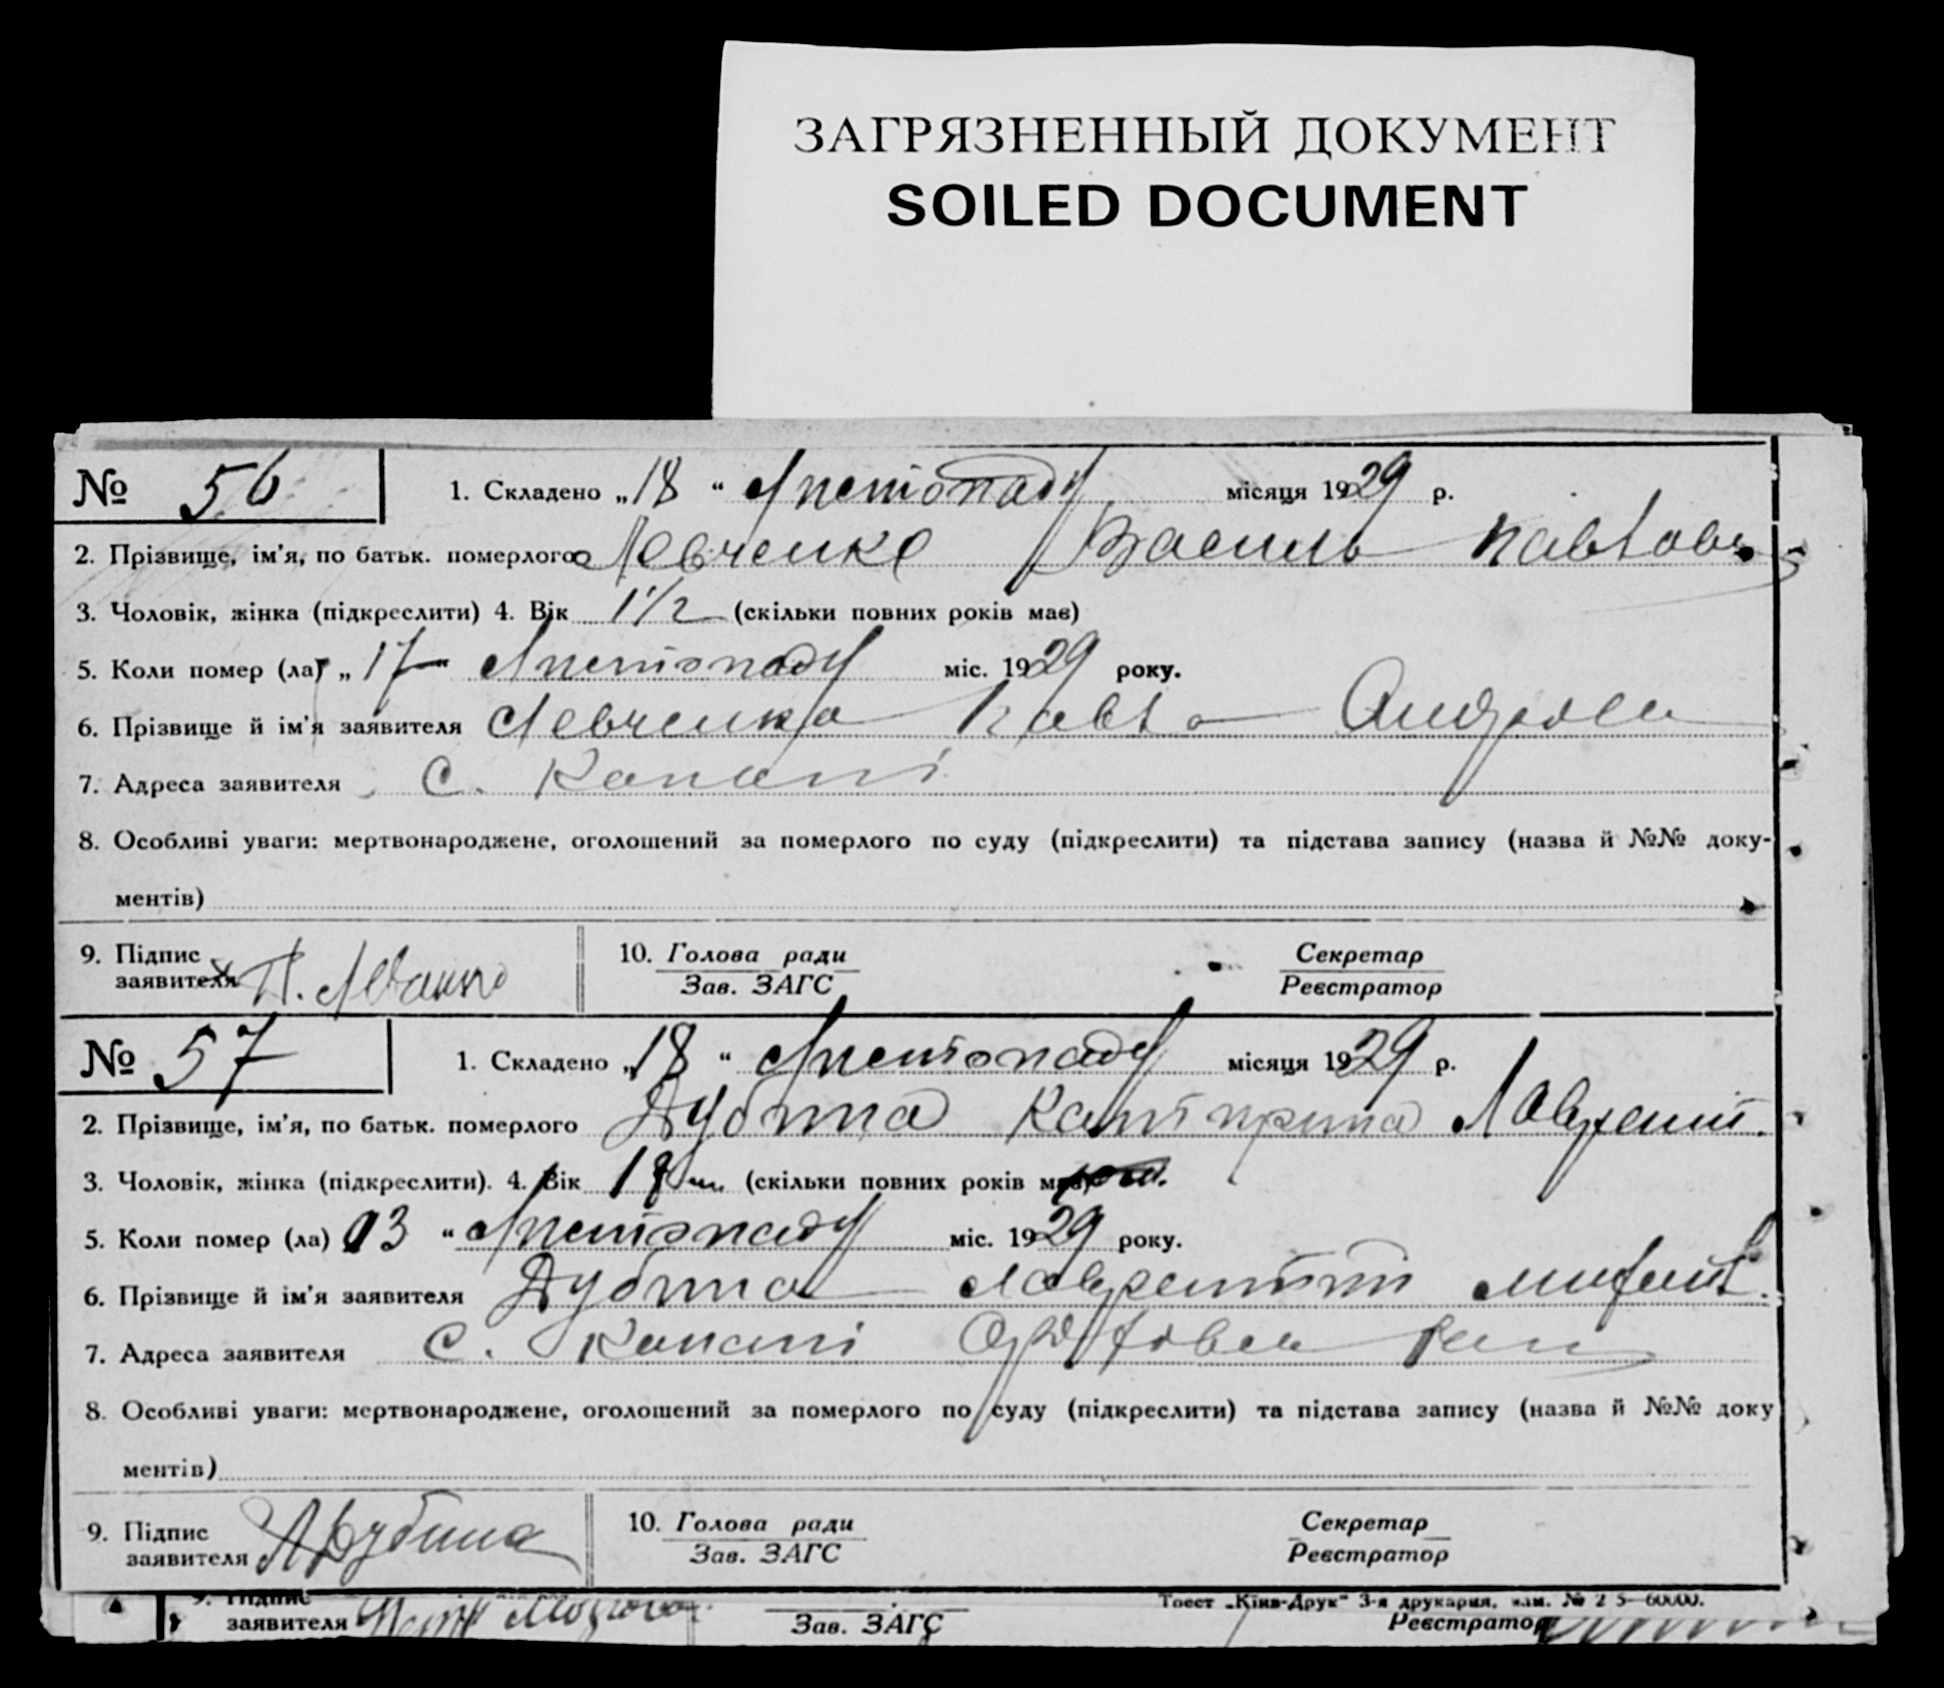 ЗАГРЯЗНЕННЫЙ ДОКУМЕНТ
SOILED DOCUMENT
№ 56 1. Складено „18“ Листопаду місяця 1929 р.
2. Прізвище, ім'я, по батьк. померлого Левченко Василь Павлов
3. Чоловік, жінка (підкреслити) 4. Вік 1 1/2 (скільки повних років має)
5. Коли помер (ла) „17“ Листопаду міс. 1929 року.
6. Прізвище й ім'я заявителя Левченко Павло
7. Адреса заявителя С. Копані
8. Особливі уваги: мертвонароджене, оголошений за померлого по суду (підкреслити) та підстава запису (назва й №№ доку-
ментів)
9. Підпис 10. Голова ради Секретар
заявителя П. Зав. ЗАГС Реєстратор
№ 57 1. Складено „18“ Листопаду місяця 1929 р.
2. Прізвище, ім'я, по батьк. померлого Дубина
3. Чоловік, жінка (підкреслити). 4. Вік (скільки повних років
5. Коли помер (ла) 13“ Листопаду міс. 1929 року.
6. Прізвище й ім'я заявителя Дубина Лаврентій
7. Адреса заявителя С. Копані
8. Особливі уваги: мертвонароджене, оголошений за померлого по суду (підкреслити) та підстава запису (назва й №№ доку
ментів)
9. Підпис 10. Голова ради Секретар
заявителя Дубина Зав. ЗАГС Реєстратор
9. Підпис Трест „Київ-Друк“ 3-я друкарня,
заявителя Зав. ЗАГС Реєстратор